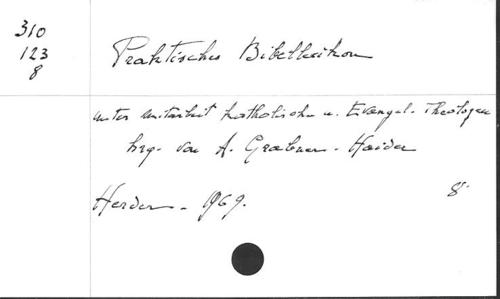 310
123
8
Praktisches Bibellexikon
unter mitarbeit katholische u. Evangel. Theologen
hrg. von A. Grabner-Haider
Herder - 1969.
8°